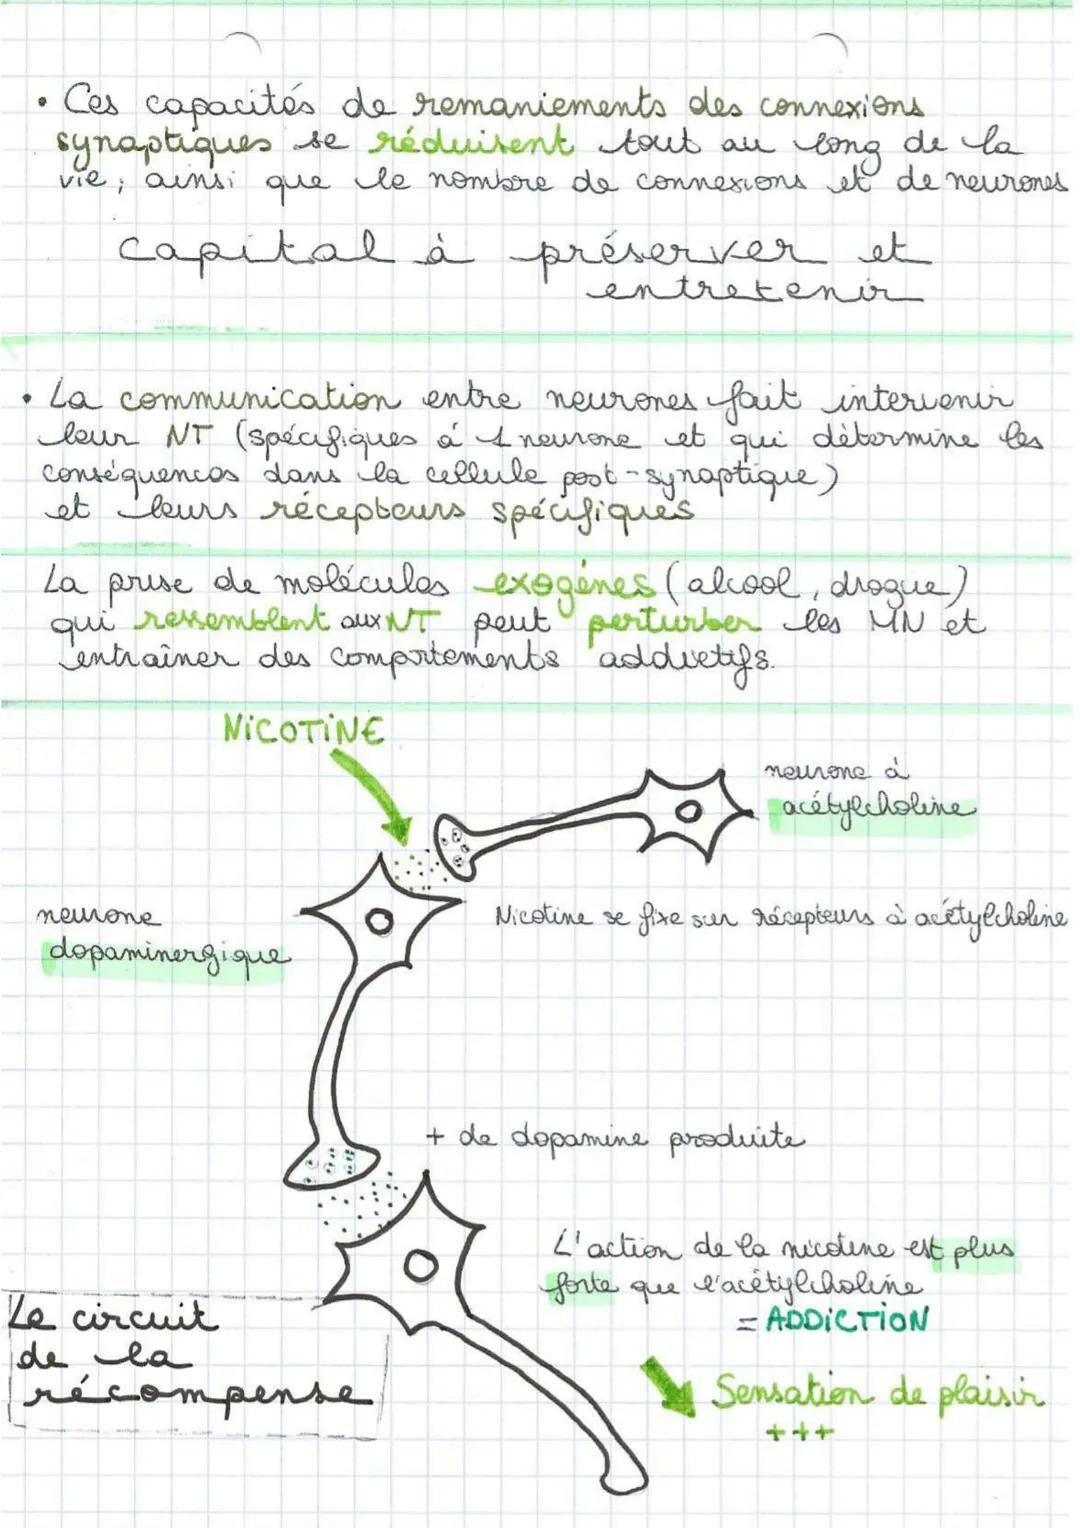 • Ces capacités de remaniements des connexions
synaptiques se réduisent tout au long de la
vie, ainsi que le nombre de connexions et de neurones
capital à préserver et
entretenir
• La communication entre neurones fait intervenir
leur NT (spécifiques à 1 neurone et qui détermine les
conséquences dans la cellule post-synaptique)
et leurs récepteurs spécifiques
La prise de molécules exogènes (alcool, drogue)
qui ressemblent aux NT peut perturber les MN et
entraîner des comportements addictifs.
NICOTINE
neurone à
acétylcholine
neurone
dopaminergique
Nicotine se fixe sur récepteurs à acétylcholine
+ de dopamine produite
L'action de la nicotine est plus
forte que l'acétylcholine
= ADDICTION
Le circuit
de la
récompense
Sensation de plaisir
+++